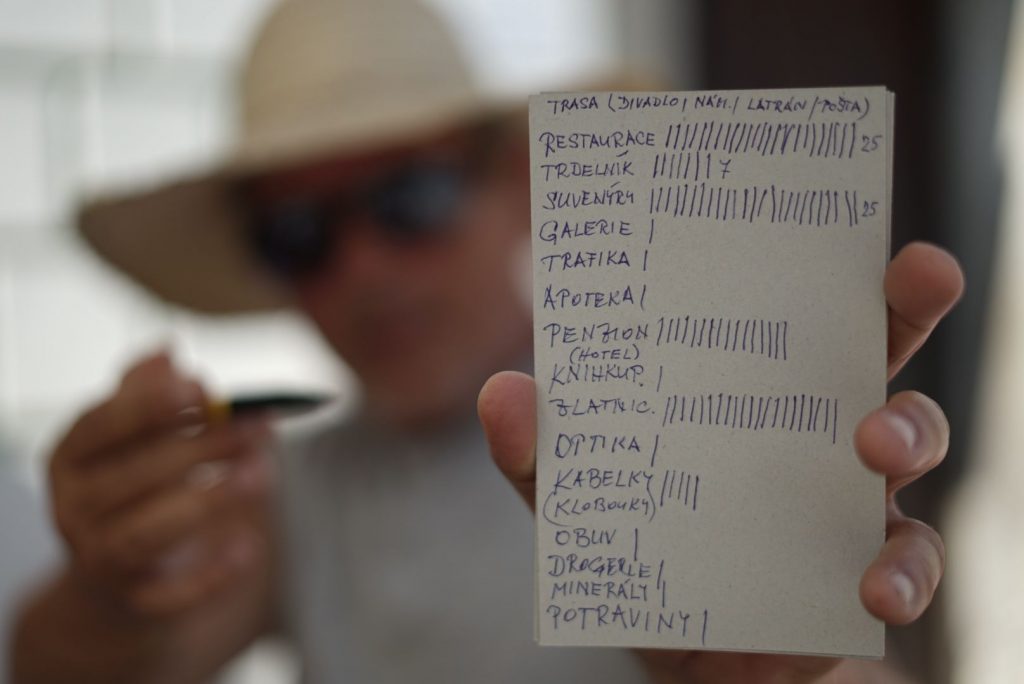 TRASA (DIVADLO/ NÁM./ LATRÁN/POŠTA)
RESTAURACE ||||||||||||||||||||||||| 25
TRDELNÍK ||||||| 7
SUVENÝRY ||||||||||||||||||||||||| 25
GALERIE |
TRAFIKA |
APOTEKA |
PENZION ||||||||||||||||
(HOTEL)
KNIHKUP. |
ZLATNIC. ||||||||||||||||||||
OPTIKA |
KABELKY |||||
(KLOBOUKY)
OBUV |
DROGERIE |
MINERÁLY |
POTRAVINY |